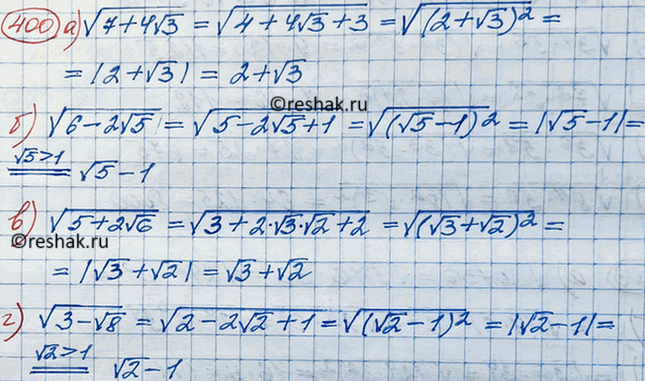 400 а) √(7+4√3) = √(4+4√3+3) = √((2+√3)²) =
= |2+√3| = 2+√3
©reshak.ru
б) √(6-2√5) = √(5-2√5+1) = √((√5-1)²) = |√5-1| =
√5>1 √5-1
в) √(5+2√6) = √(3+2·√3·√2+2) = √((√3+√2)²) =
©reshak.ru
= |√3+√2| = √3+√2
г) √(3-√8) = √(2-2√2+1) = √((√2-1)²) = |√2-1| =
√2>1 √2-1